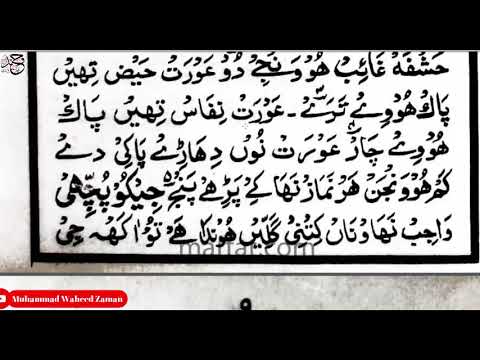 حشفہ غائب ہووݨجے دو عورت حیض تھیں
پاک ہووے ترے۔ عورت نفاس تھیں پاک
ہووے چار عورت نوں دہاڑے پاکی دے
کم ہووݨجن ہر نماز نہا کے پڑھے پنج جیکو پچھی
واجب نہاوݨاں کتنی گلیں ہوندا ہے توں آکھہ جی
maffai.com
Muhammad Waheed Zaman
۹